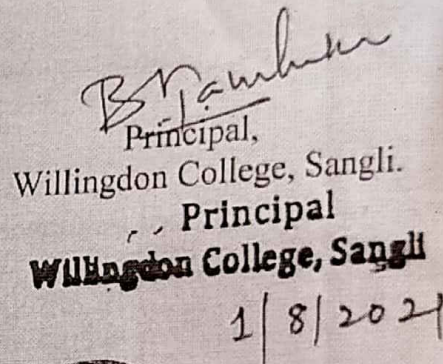 Principal,
Willingdon College, Sangli.
Principal
Willingdon College, Sangli
1/8/2021